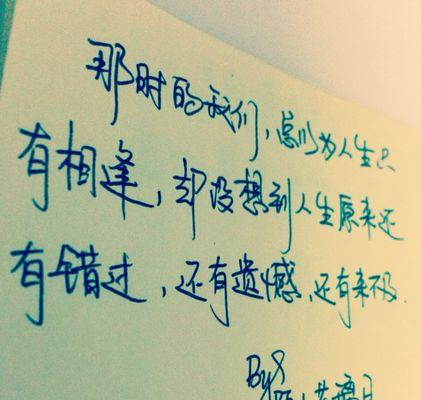 那时的我们，总以为人生只
有相逢，却没想到人生原来还
有错过，还有遗憾，还有来不及.
By